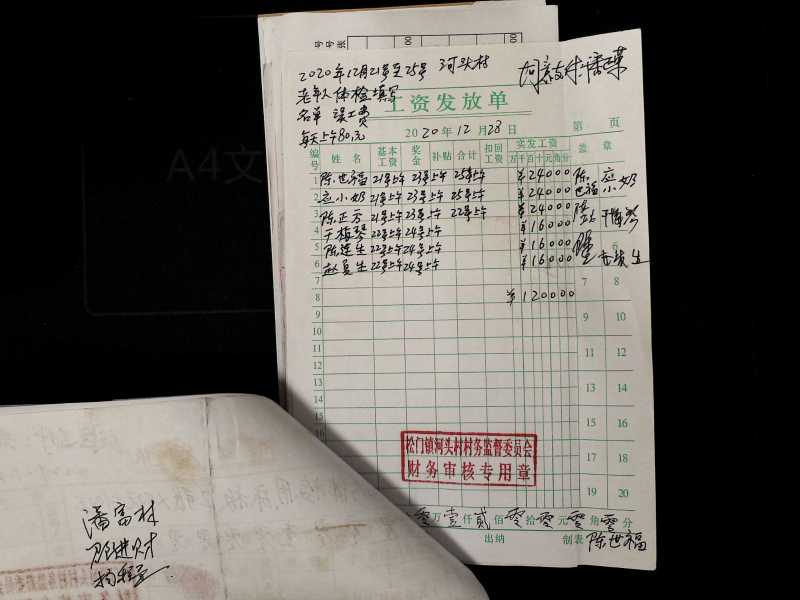 2020年12月21号至25号 河头村
老年人体检填写
名单 误工费
每天上午80元
工资发放单
2020年12月28日
第 页
编号 姓名 基本工资 奖金 补贴 合计 扣回工资 实发工资 盖章
万千百十元角分
1 陈世福 21号上午 23号上午 25号上午 ¥24000 陈世福
2 应小奶 21号上午 23号上午 25号上午 ¥24000 应小奶
3 陈正方 21号上午 23号上午 22号上午 ¥24000
4 干梅琴 22号上午 24号上午 ¥16000 干梅琴
5 陈莲生 22号上午 24号上午 ¥16000
6 赵员生 22号上午 24号上午 ¥16000 6
7 7 8
8 ¥120000
9 9 10
10
11 11 12
12
13 13 14
14
15 15 16
16
17 17 18
18
19 19 20
20
松门镇河头村村务监督委员会
财务审核专用章
零万壹仟贰佰零拾零元零角零分
出纳 制表 陈世福
潘富林